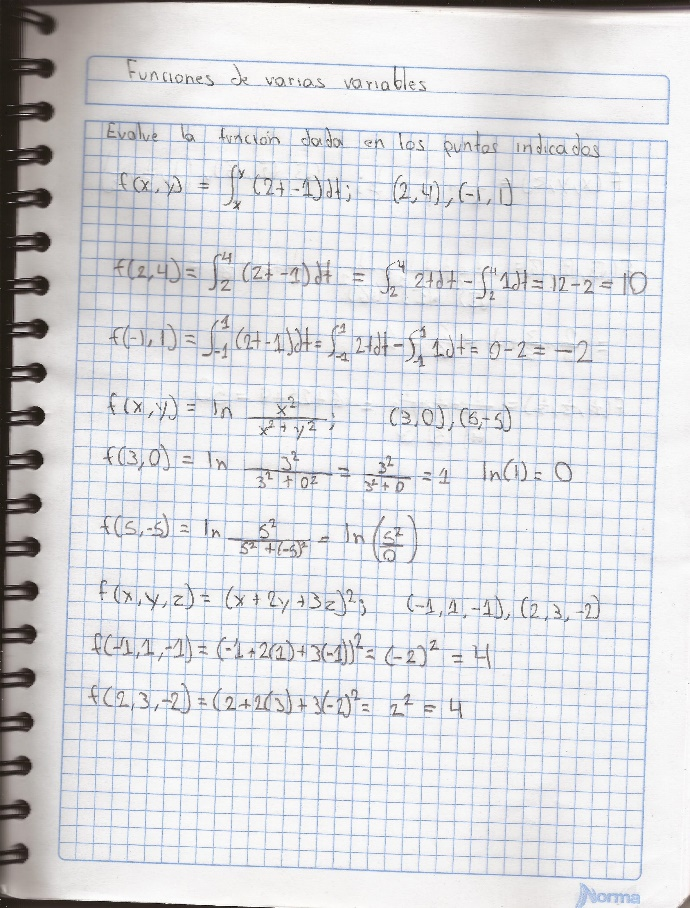 Funciones de varias variables
Evalue la función dada en los puntos indicados
f(x,y) = ∫_x^y (2t-1)dt; (2,4), (-1,1)
f(2,4) = ∫_2^4 (2t-1)dt = ∫_2^4 2tdt - ∫_2^4 1dt = 12-2 = 10
f(-1,1) = ∫_-1^1 (2t-1)dt = ∫_-1^1 2tdt - ∫_-1^1 1dt = 0-2 = -2
f(x,y) = ln x²/(x²+y²); (3,0), (5,-5)
f(3,0) = ln 3²/(3²+0²) = 3²/(3²+0) = 1 ln(1) = 0
f(5,-5) = ln 5²/(5²+(-5)²) = ln(5²/0)
f(x,y,z) = (x+2y+3z)²; (-1,1,-1), (2,3,-2)
f(-1,1,-1) = (-1+2(1)+3(-1))² = (-2)² = 4
f(2,3,-2) = (2+2(3)+3(-2)² = 2² = 4
Norma